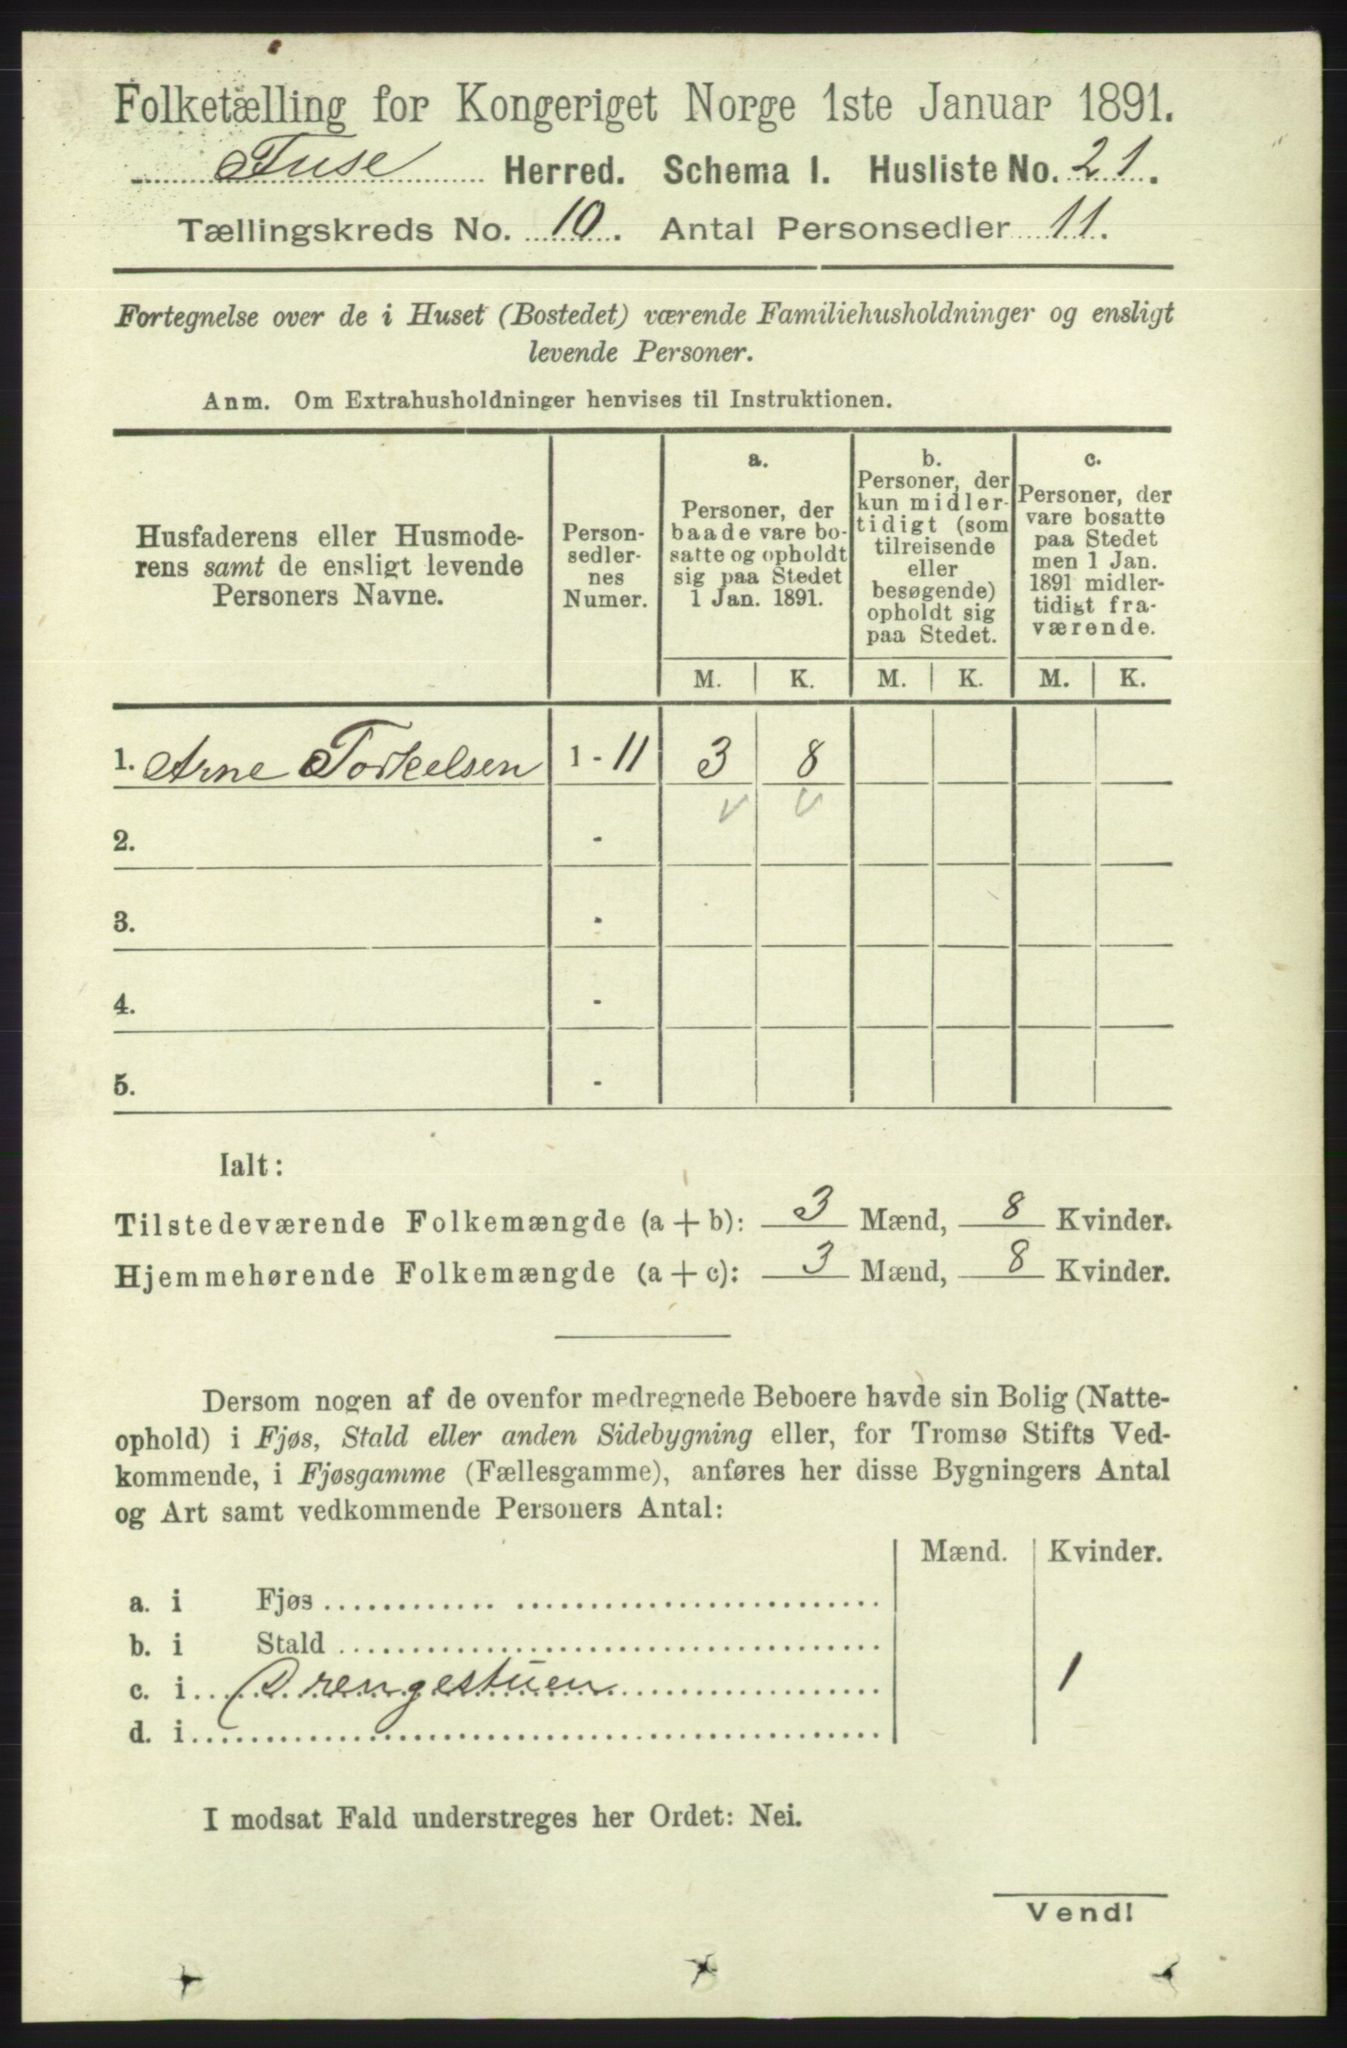 Folketælling for Kongeriget Norge 1ste Januar 1891.
Fuse Herred. Schema I. Husliste No. 21.
Tællingskreds No. 10. Antal Personsedler 11.
Fortegnelse over de i Huset (Bostedet) værende Familiehusholdninger og ensligt
levende Personer.
Anm. Om Extrahusholdninger henvises til Instruktionen.
Husfaderens eller Husmode-
rens samt de ensligt levende
Personers Navne.
Person-
sedler-
nes
Numer.
a.
Personer, der
baade vare bo-
satte og opholdt
sig paa Stedet
1 Jan. 1891.
b.
Personer, der
kun midler-
tidigt (som
tilreisende
eller
besøgende)
opholdt sig
paa Stedet.
c.
Personer, der
vare bosatte
paa Stedet
men 1 Jan.
1891 midler-
tidigt fra-
værende.
M. K. M. K. M. K.
1. Arne Torkelsen 1 - 11 3 8
2. -
3. -
4. -
5. -
Ialt:
Tilstedeværende Folkemængde (a + b): 3 Mænd, 8 Kvinder.
Hjemmehørende Folkemængde (a + c): 3 Mænd, 8 Kvinder.
Dersom nogen af de ovenfor medregnede Beboere havde sin Bolig (Natte-
ophold) i Fjøs, Stald eller anden Sidebygning eller, for Tromsø Stifts Ved-
kommende, i Fjøsgamme (Fællesgamme), anføres her disse Bygningers Antal
og Art samt vedkommende Personers Antal:
Mænd. Kvinder.
a. i Fjøs
b. i Stald
c. i Drengestuen 1
d. i
I modsat Fald understreges her Ordet: Nei.
Vend!